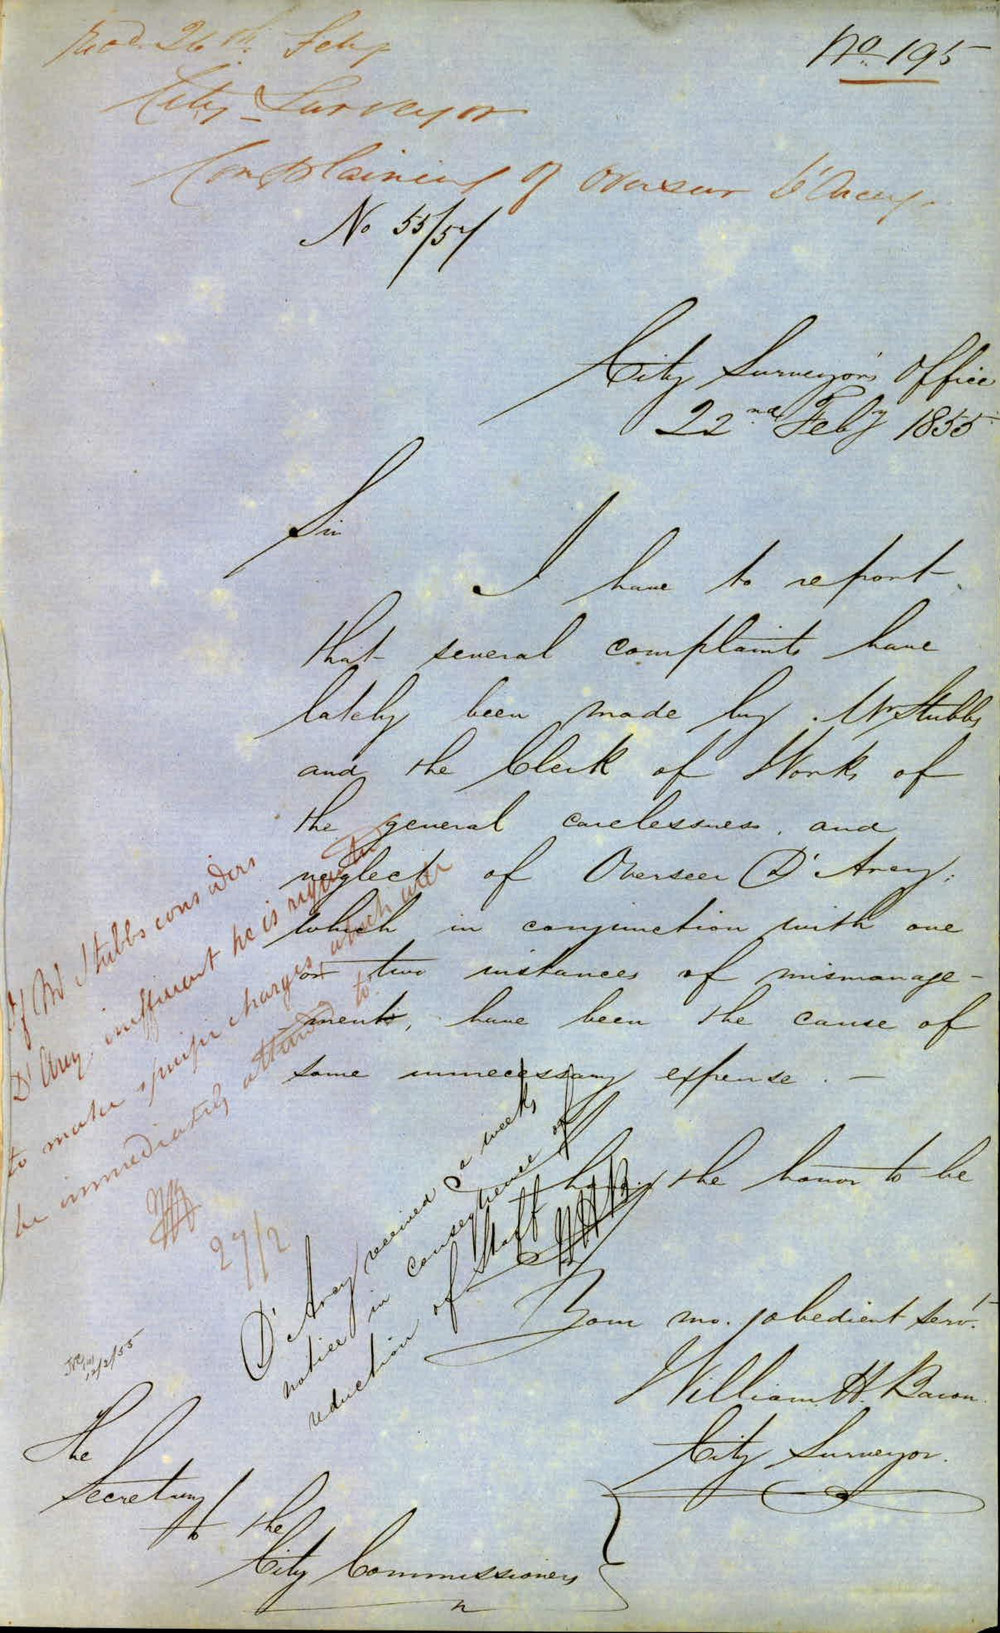 Recd. 26th Feby
No. 195
City Surveyor
Complaining of Overseer D'Arcy.
No 55/57
City Surveyor's Office
22nd Feby 1855
Sir
I have to report
that several complaints have
lately been made by Mr Stubbs
and the Clerk of Works of
the general carelessness and
neglect of Overseer D'Arcy;
which in conjunction with one
or two instances of mismanage-
ments, have been the cause of
some unnecessary expense. —
I have the honor to be
Your mo. obedient Servt.
William H. Bacon.
City Surveyor.
The
Secretary
to the
City Commissioners
If Mr Stubbs considers
D'Arcy inefficient he is
to make specific charges which will
be immediately attended to.
27/2
D'Arcy received a weeks
notice in consequence of
reduction of Staff WHB
12/2/55